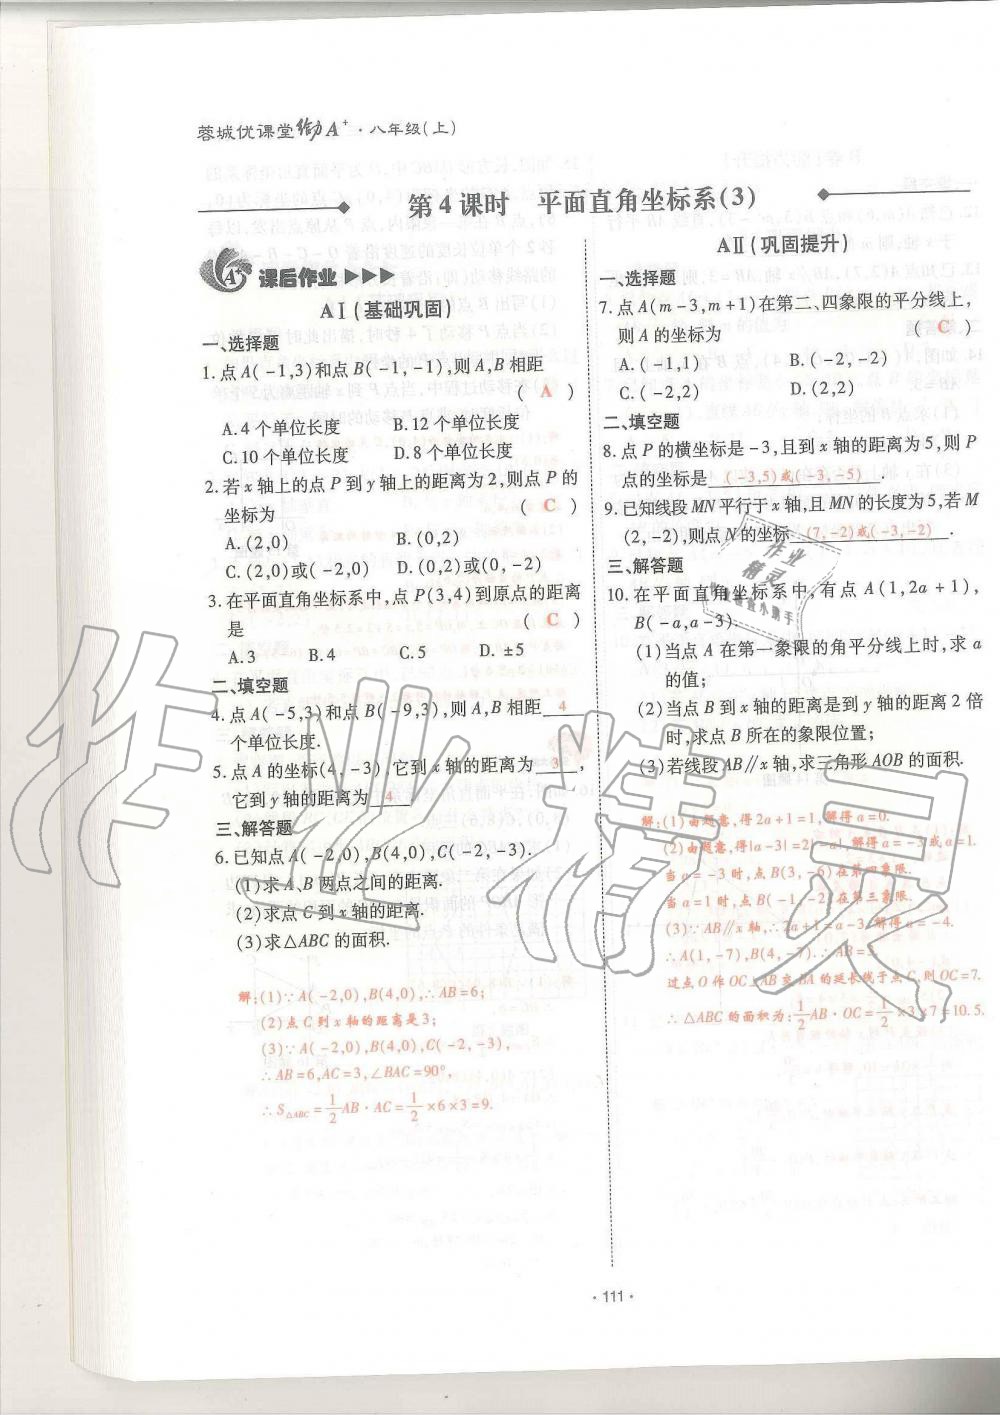 蓉城优课堂给力A⁺·八年级(上)
第4课时 平面直角坐标系(3)
课后作业
AⅠ(基础巩固)
一、选择题
1.点A(-1,3)和点B(-1,-1),则A,B相距
( A )
A.4个单位长度 B.12个单位长度
C.10个单位长度 D.8个单位长度
2.若x轴上的点P到y轴上的距离为2,则点P的
坐标为 ( C )
A.(2,0) B.(0,2)
C.(2,0)或(-2,0) D.(0,2)或(0,-2)
3.在平面直角坐标系中,点P(3,4)到原点的距离
是 ( C )
A.3 B.4 C.5 D.±5
二、填空题
4.点A(-5,3)和点B(-9,3),则A,B相距 4
个单位长度.
5.点A的坐标(4,-3),它到x轴的距离为 3 ,
它到y轴的距离为 4 .
三、解答题
6.已知点A(-2,0),B(4,0),C(-2,-3).
(1)求A,B两点之间的距离.
(2)求点C到x轴的距离.
(3)求△ABC的面积.
解:(1)∵A(-2,0),B(4,0),∴AB=6;
(2)点C到x轴的距离是3;
(3)∵A(-2,0),B(4,0),C(-2,-3),
∴AB=6,AC=3,∠BAC=90°,
∴S△ABC=1/2AB·AC=1/2×6×3=9.
AⅡ(巩固提升)
一、选择题
7.点A(m-3,m+1)在第二、四象限的平分线上,
则A的坐标为 ( C )
A.(-1,1) B.(-2,-2)
C.(-2,2) D.(2,2)
二、填空题
8.点P的横坐标是-3,且到x轴的距离为5,则P
点的坐标是 (-3,5)或(-3,-5) .
9.已知线段MN平行于x轴,且MN的长度为5,若M
(2,-2),则点N的坐标 (7,-2)或(-3,-2) .
三、解答题
10.在平面直角坐标系中,有点A(1,2a+1),
B(-a,a-3).
(1)当点A在第一象限的角平分线上时,求a
的值;
(2)当点B到x轴的距离是到y轴的距离2倍
时,求点B所在的象限位置;
(3)若线段AB∥x轴,求三角形AOB的面积.
解:(1)由题意,得2a+1=1,解得a=0.
(2)由题意,得|a-3|=2|-a|,解得a=-3或a=1.
当a=-3时,点B(3,-6)在第四象限.
当a=1时,点B(-1,-2)在第三象限.
(3)∵AB∥x轴,∴2a+1=a-3,解得a=-4.
∴A(1,-7),B(4,-7).∴AB=3.
过点O作OC⊥AB交BA的延长线于点C,则OC=7.
∴△ABC的面积为:1/2AB·OC=1/2×3×7=10.5.
·111·
作业精灵
作业
精灵
作业检查小助手